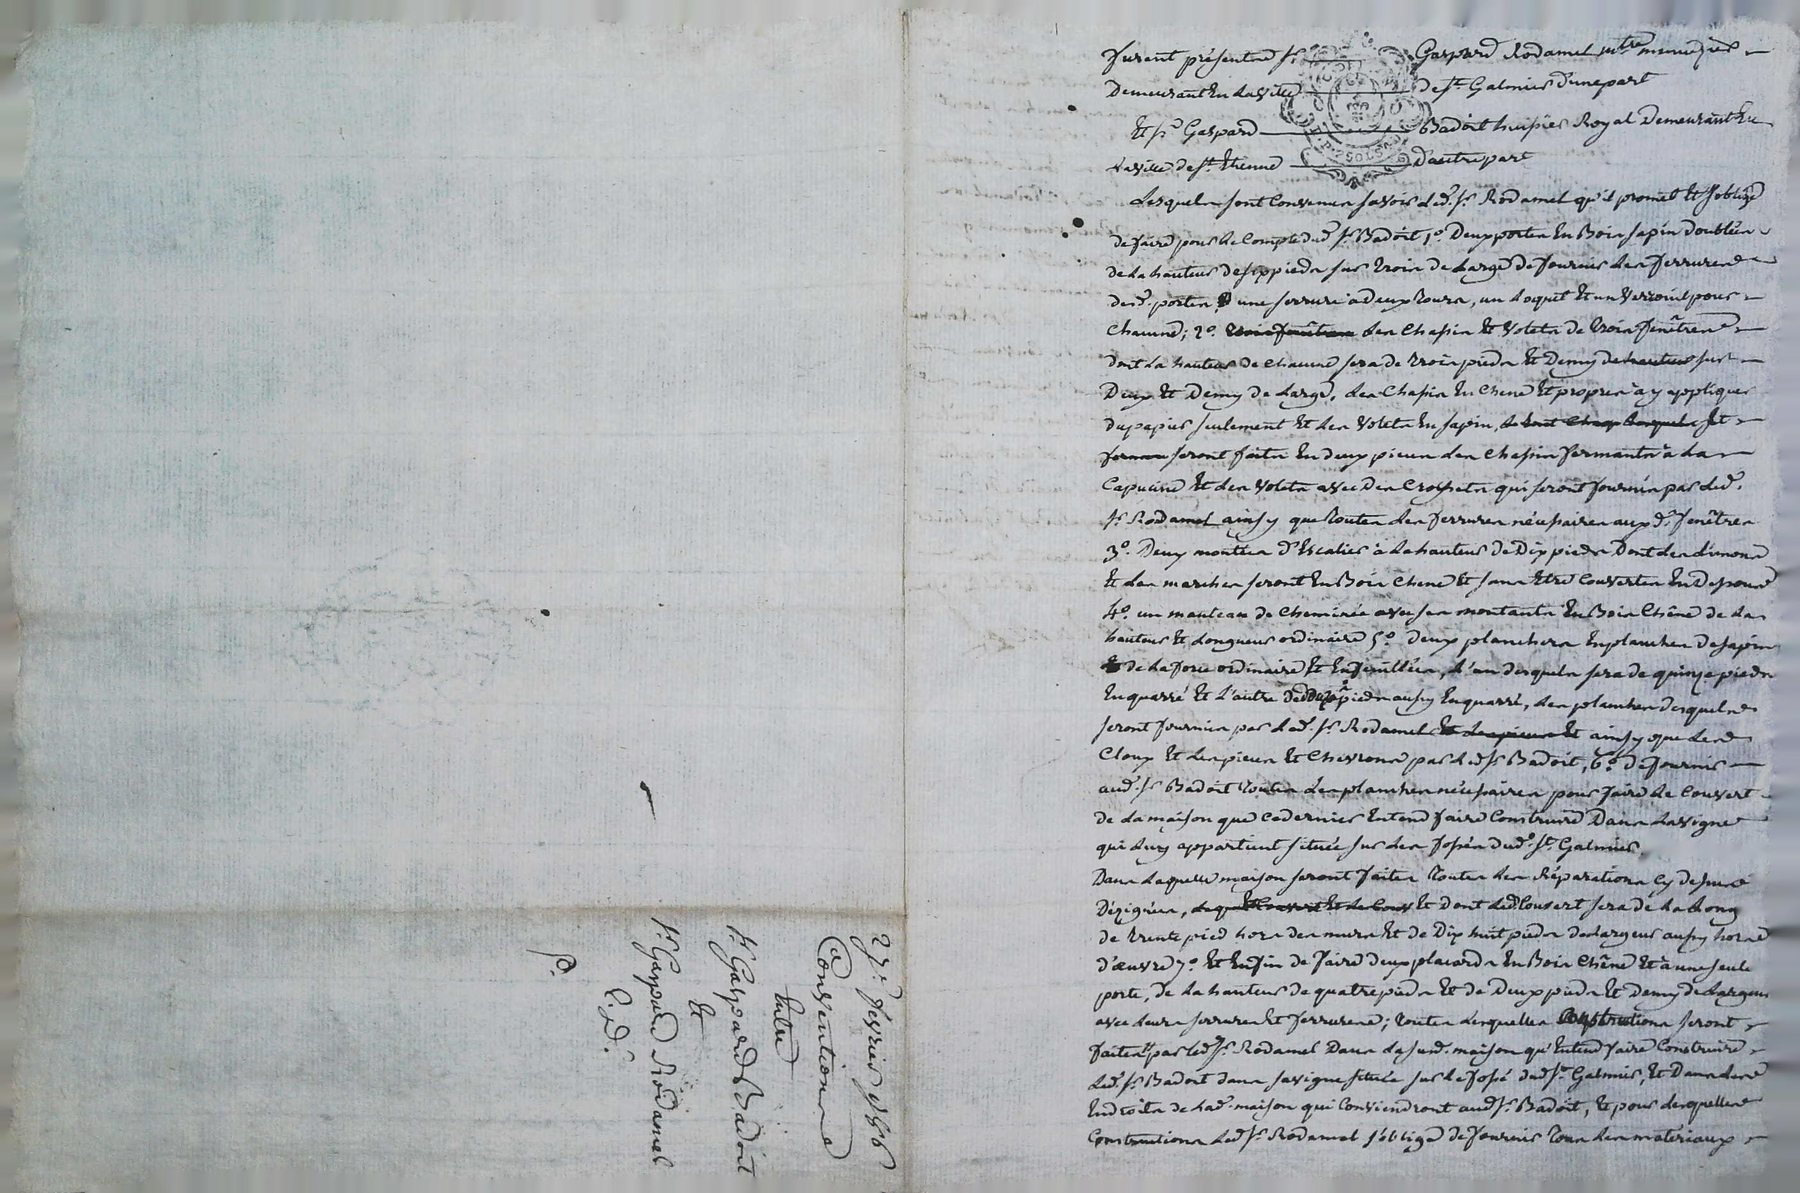 furent présents Sr. Gaspard Rodamel mtre menuizier
Demeurant En la ville de St. Galmier d'une part
Et Sr. Gaspard Badoit huissier Royal Demeurant En
la ville de St. Etienne d'autre part
Lesquels sont Convenus savoir led. Sr. Rodamel qu'il promet Et s'oblige
de faire pour le Compte dud. Sr. Badoit 1o. Deux portes En Bois sapin doublées
de la hauteur de six pieds sur trois de large de fournir les ferrures
desd. portes une serrure à deux tours, un loquet Et un verrouil pour
Chacune; 2o. trois fenêtres les Chassis Et volets de trois fenêtres
dont la hauteur de chacune sera de trois pieds Et Demy de hauteur sur
Deux Et Demy de large, les Chassis En Chene Et propres à y appliquer
du papier seulement Et les volets En sapin, Et
seront faits En deux pieces les Chassis fermants à la
Capucine Et les volets avec des Crochets qui seront fournis par led.
Sr. Rodamel ainsy que toutes les ferrures nécessaires auxd. fenêtres
3o. Deux montées d'Escalier à la hauteur de Dix pieds Dont les limons
Et les marches seront En Bois Chene Et sans Etre Couvertes En Dessous
4o. un manteau de Cheminée avec ses montants En Bois Chêne de la
hauteur Et longueur ordinaire 5o. deux planchers En planches de sapin
de la force ordinaire Et Enfeuillées, l'un desquels sera de quinze pieds
En quarré Et l'autre de pieds aussy En quarré, les planches desquels
seront fournies par led. Sr. Rodamel Et les pieces Et ainsy que les
Cloux Et les pieces Et Chevrons par led. Sr. Badoit, 6o. de fournir
aud. Sr. Badoit toutes les planches nécessaires pour faire le Couvert
de la maison que ce dernier Entend faire Construire Dans la vigne
qui luy appartient située sur les fossés dud. St. Galmier.
Dans laquelle maison seront faites toutes les Réparations Cy dessus
Désignées, Et Dont led. Couvert sera de la long
de trente pied hors des murs Et de Dix huit pieds de largeur aussy hors
d'œuvre 7o. Et Enfin de faire deux placards En Bois Chêne Et à une seule
porte, de la hauteur de quatre pieds Et de Deux pieds Et Demy de largeur
avec leurs serrures Et ferrures; toutes lesquelles Constructions seront
faites par led. Sr. Rodamel Dans la susd. maison qu'Entend faire Construire
led. Sr. Badoit dans sa vigne située sur le fossé dud. St. Galmier, Et Dans les
Endroits de lad. maison qui Conviendront aud. Sr. Badoit, Et pour lesquelles
Constructions led. Sr. Rodamel s'oblige de fournir tous les materiaux
27e. fevrier
Conventions
Entre
Sr. Gaspard Badoit
Et
Sr. Gaspard Rodamel